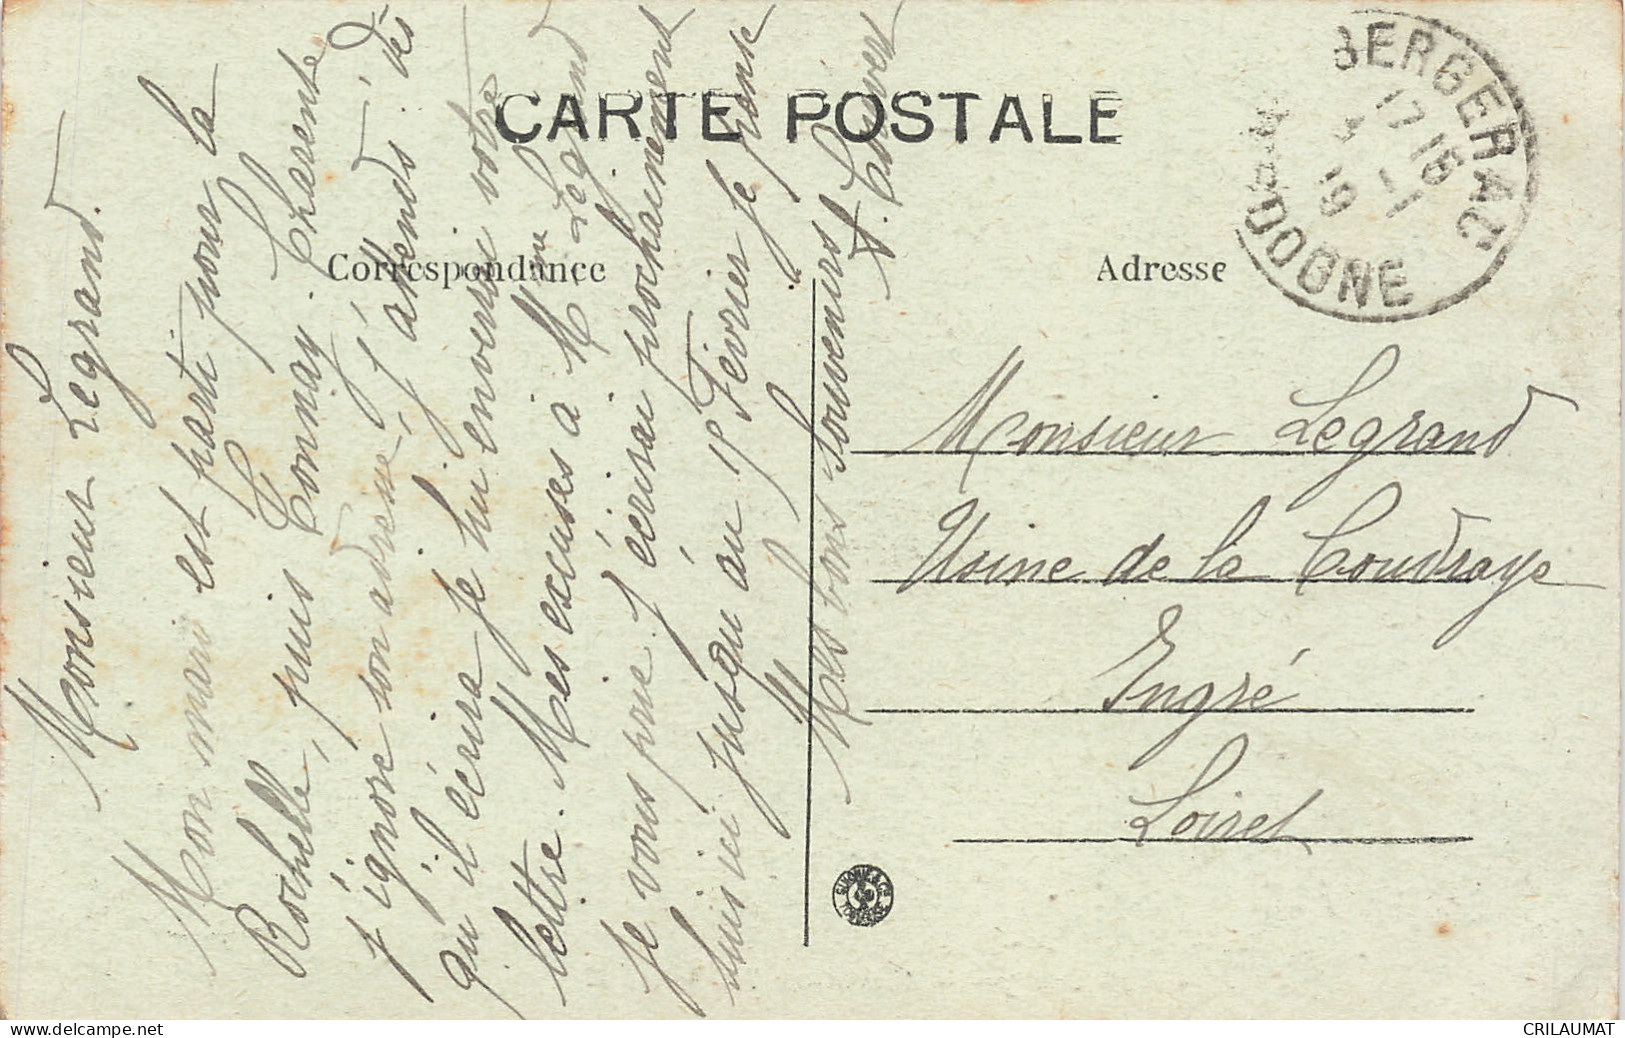 CARTE POSTALE
Correspondance
Adresse
BERGERAC
17 15
3 - 1
19
DOGNE
Monsieur Legrand.
Mon mari est parti pour la
Rochelle, puis Tonnay. Charente
J'ignore son adresse, j'attends. dès
qu'il écrira je lui enverrai votre
lettre. Mes excuses à Mme Legrand
Je vous prie. J'écrirai prochainement
suis ici jusqu'au 15 Février je pense
Mes bons souvenirs
Monsieur Legrand
Usine de la Coudraye
Ingré
Loiret
delcampe.net
CRILAUMAT